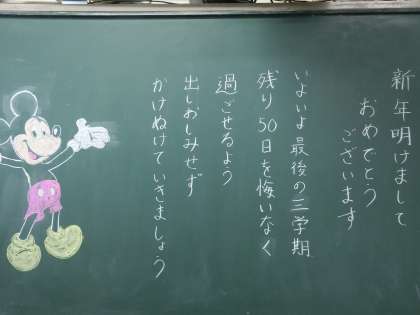 新年明けまして
おめでとう
ございます
いよいよ最後の三学期
残り50日を悔いなく
過ごせるよう
出しおしみせず
かけぬけていきましょう